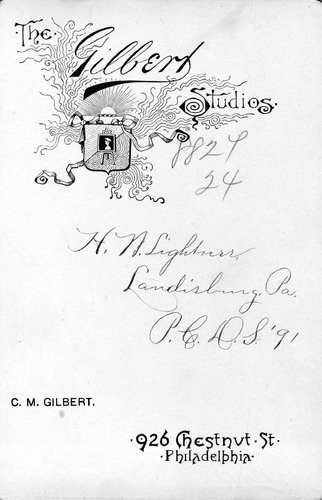 The Gilbert
Studios.
8829
24
H. N. Lightner,
Landisburg, Pa.
P. C. D. S. '91
C. M. GILBERT.
·926 Chestnut·St·
·Philadelphia·